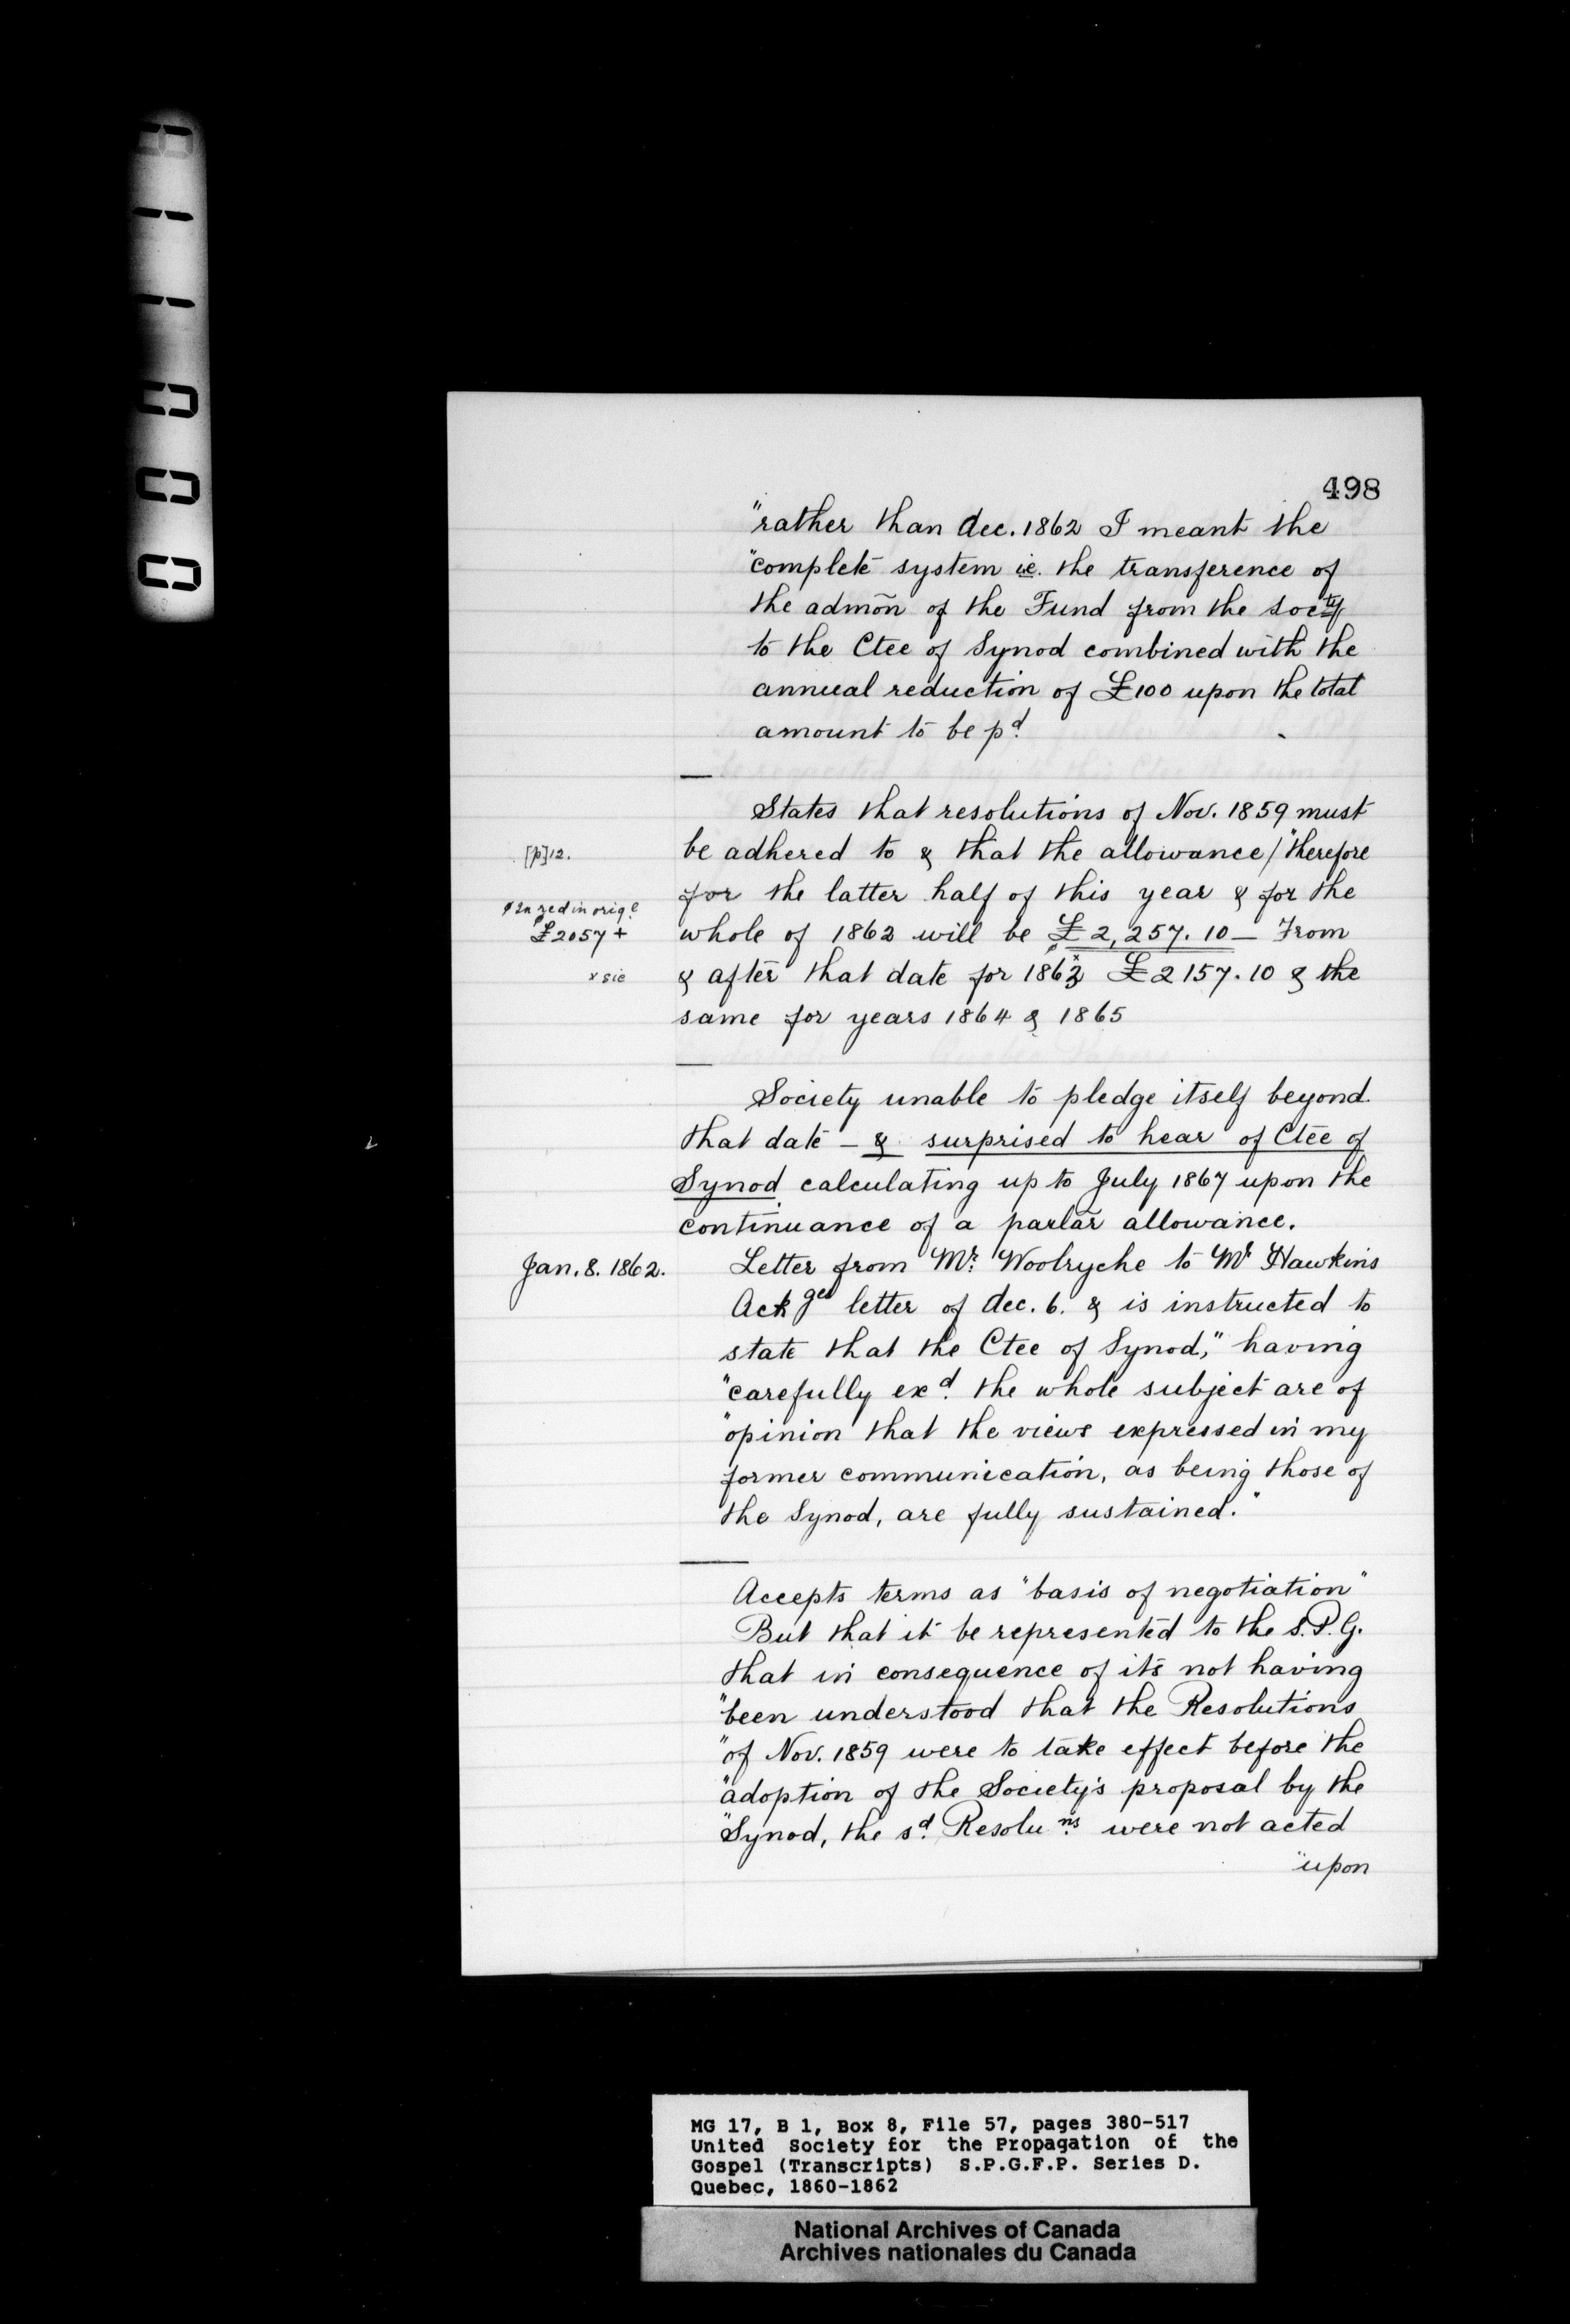 498
"rather than dec. 1862 I meant the
"complete system ie. the transference of
the admōn of the Fund from the Socty
to the Ctee of Synod combined with the
annual reduction of £100 upon the total
amount to be pd.
States that resolutions of Nov. 1859 must
[p]12.
be adhered to & that the allowance / "therefore
In red in orige
for the latter half of this year & for the
£2057 +
whole of 1862 will be £2,257.10 — From
x sic
& after that date for 1863 £2157.10 & the
same for years 1864 & 1865
Society unable to pledge itself beyond
that date – & surprised to hear of Ctee of
Synod calculating up to July 1867 upon the
continuance of a parlār allowance.
Jan. 8. 1862.
Letter from Mr. Woolryche to Mr Hawkins
Ackges letter of dec. 6. & is instructed to
state that the Ctee of Synod," having
"carefully exd. the whole subject are of
"opinion that the views expressed in my
former communication, as being those of
the Synod, are fully sustained."
Accepts terms as "basis of negotiation"
But that it be represented to the S.P.G.
that in consequence of its not having
"been understood that the Resolutions
"of Nov. 1859 were to take effect before the
"adoption of the Society's proposal by the
"Synod, the sd. Resoluns. were not acted
"upon
MG 17, B 1, Box 8, File 57, pages 380-517
United Society for the Propagation of the
Gospel (Transcripts) S.P.G.F.P. Series D.
Quebec, 1860-1862
National Archives of Canada
Archives nationales du Canada